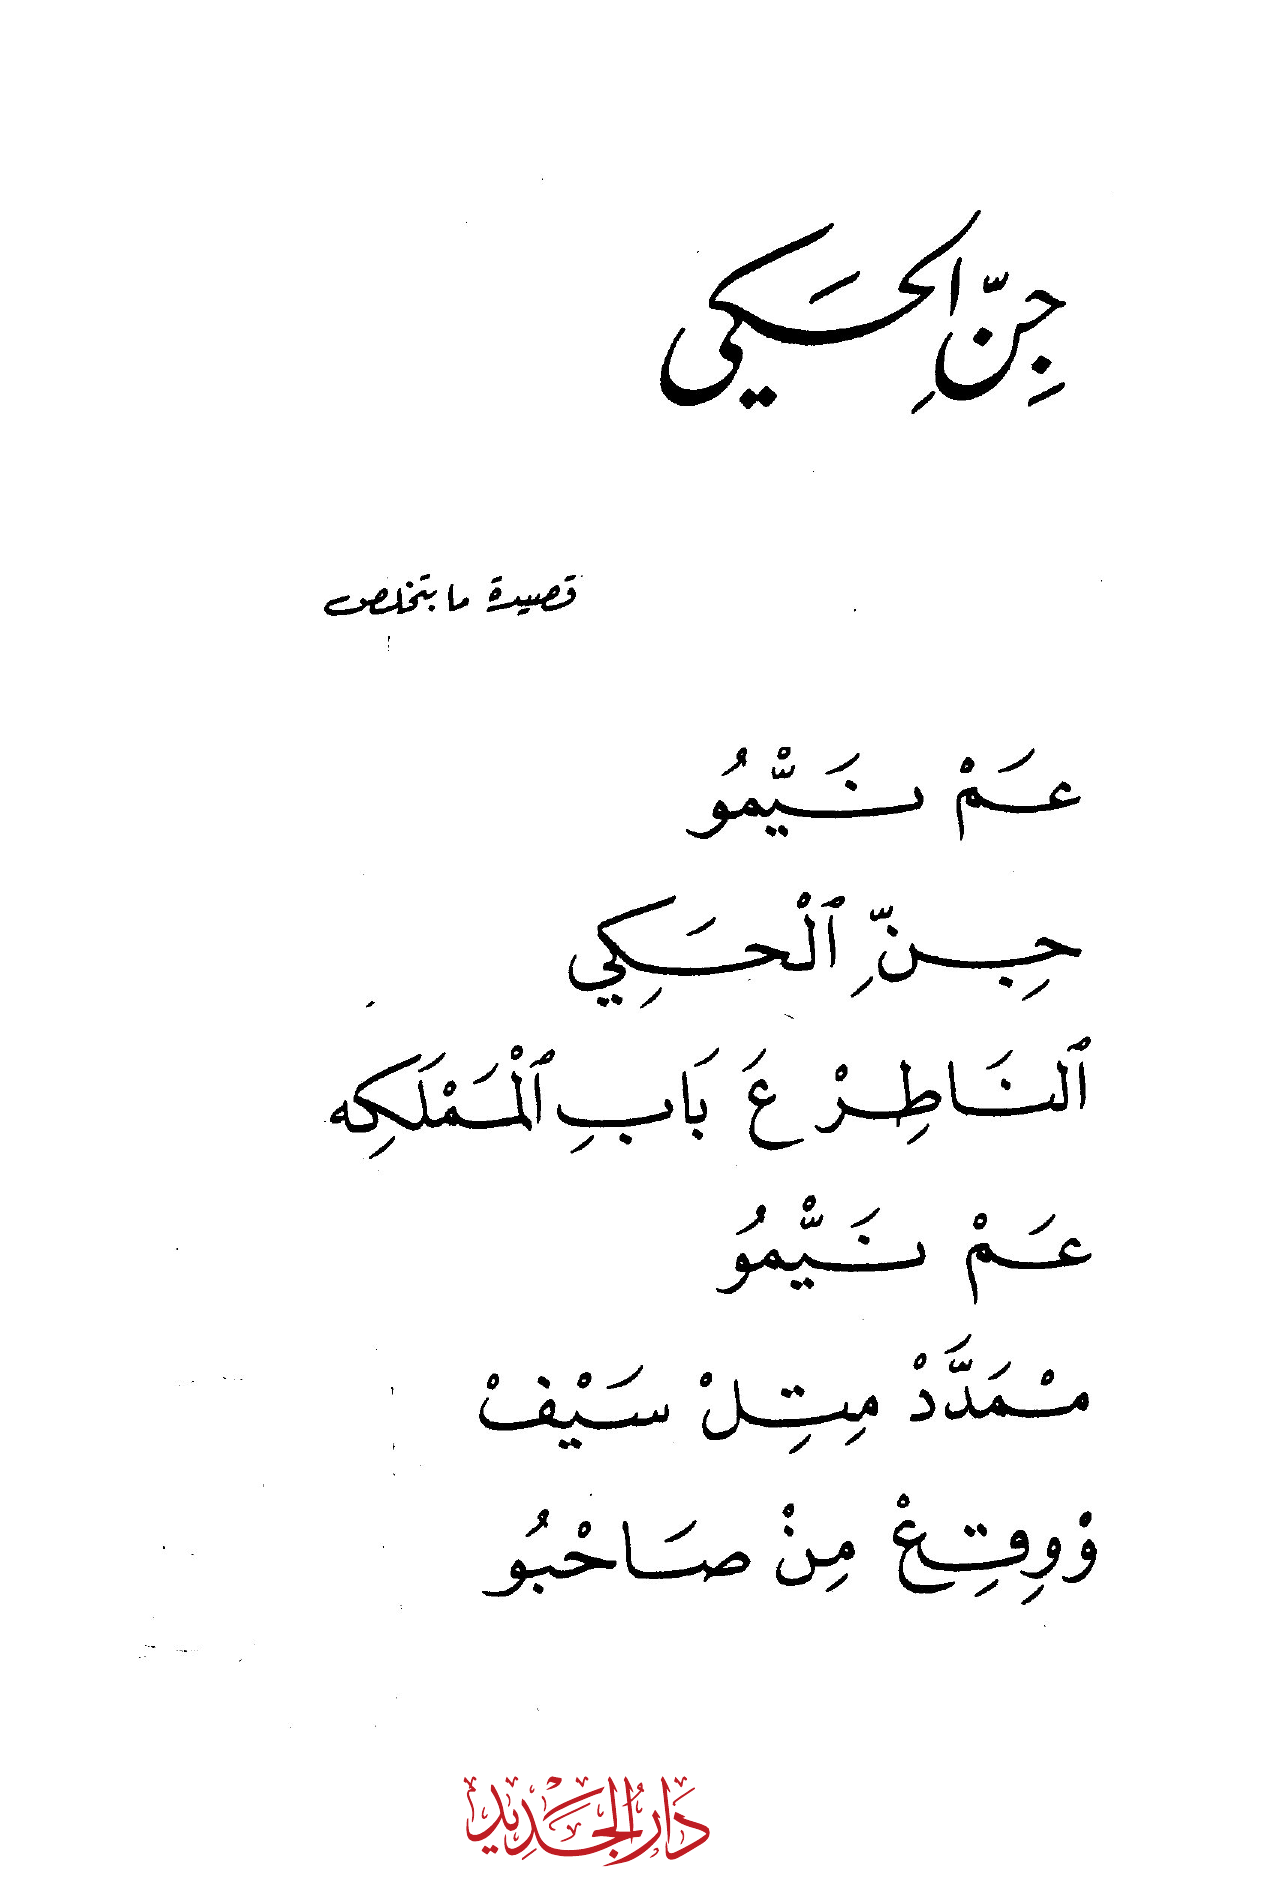 جِنِّ الحَكي
قصيدة ما بتخلص
عَمْ نَيّْمُو
جِنِّ ٱلْحَكِي
ٱلنَاطِرْ عَ بَابِ ٱلْمَمْلَكِه
عَمْ نَيّْمُو
مْمَدَّدْ مِتِلْ سَيْفْ
وْوِقِعْ مِنْ صَاحْبُو
دَار الجَدِيد